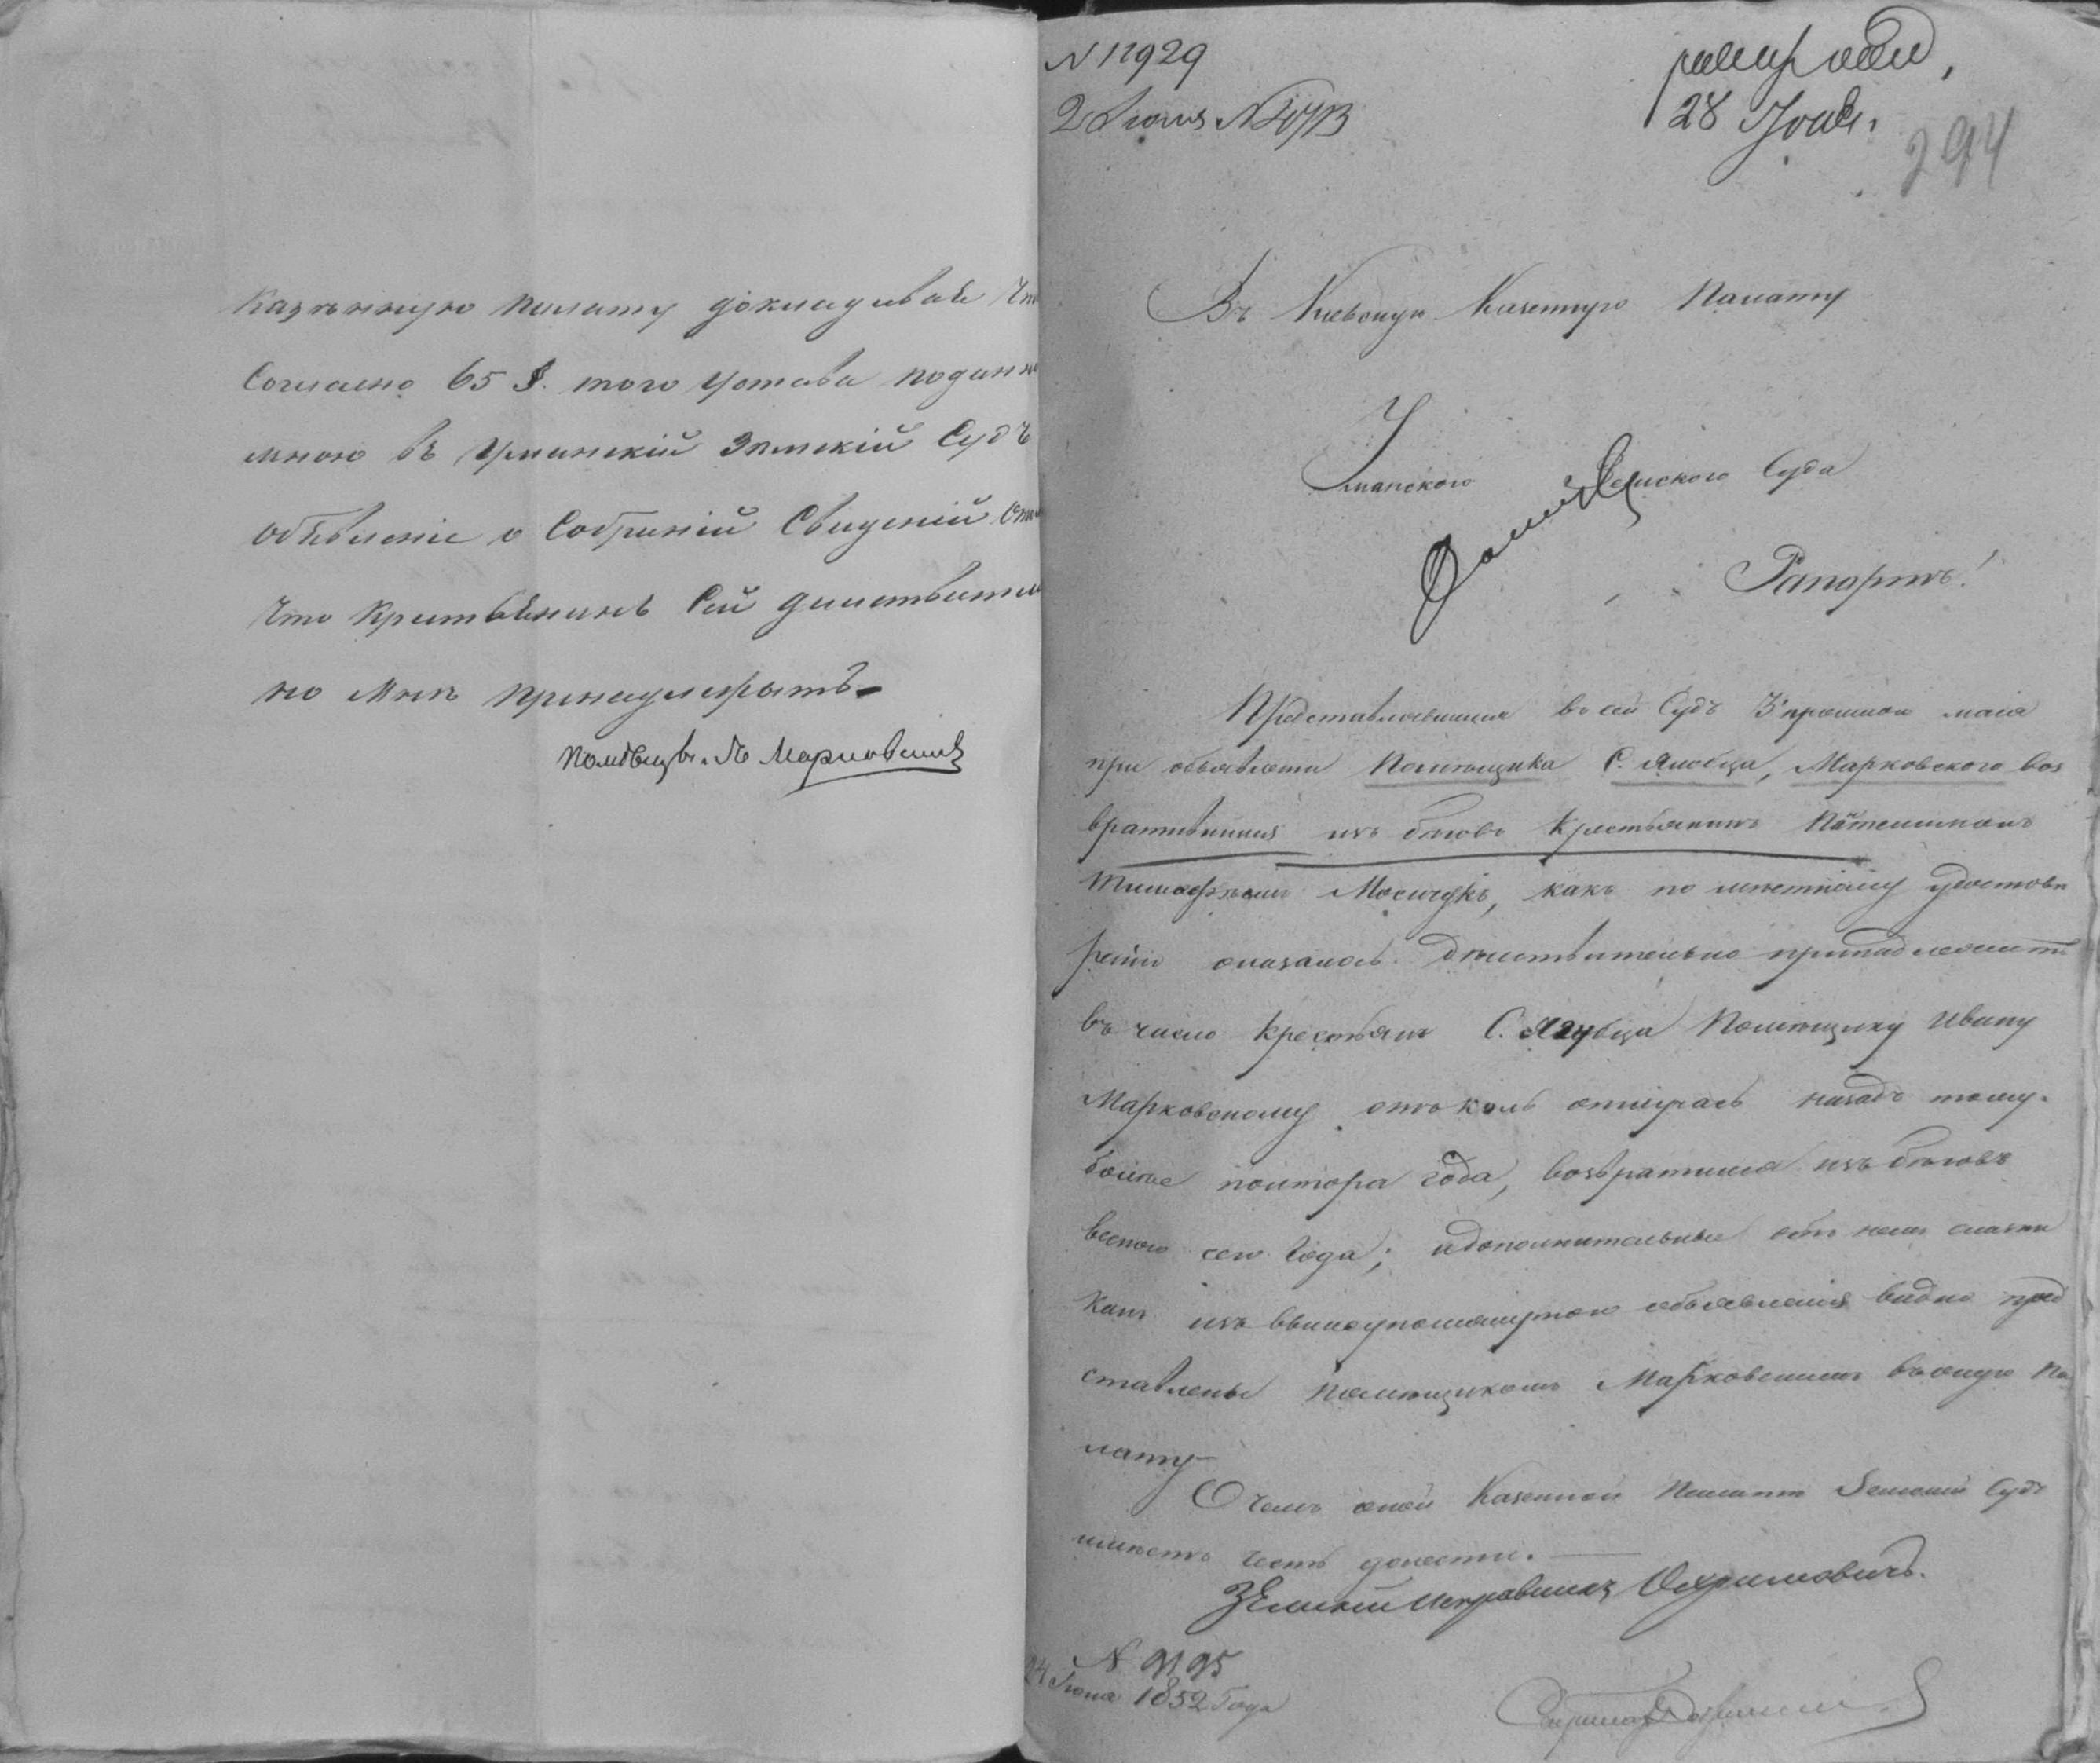 Казенную Палату докладивая Что
Согласно 65 §. того Устава поданно
мною въ Уманскій Земскій Судъ
объвленіе о Собраній Сведеній
Что Кристьянинъ Сей Диистьвител
но Мнѣ принадлежытъ
Марковскій
N 11929
28
28 Іюня
294
Въ Кіевскую Казенную Палату
Уманского Земского Суда
Рапортъ!
Представлявшійся во сей Судъ 3 прошлаго маія
при объявленіи Помѣщика С. Ягубца, Марковского воз
вратившійся изъ бѣговъ Крестьянинъ
Мосичукъ, какъ по местному удостовѣ
ренію оказалось дѣйствительно принадлежитъ
въ число Крестьянъ С. Ягубца Помѣщику Ивану
Марковскому отъ коль отлучась назадъ тому
более полтора года, возвратился изъ бѣговъ
весною сего Года; идополнительные обѣ немъ сказки
какъ изъ вышеупомянутого объявленія видно пред
ставлены помѣщикомъ Марковскимъ въоную Па
лату
О чемъ оной Казенной Палате Земскій Судъ
имѣетъ честь донести.
Земскій исправникъ
N 9195
24 Іюня 1852 Года